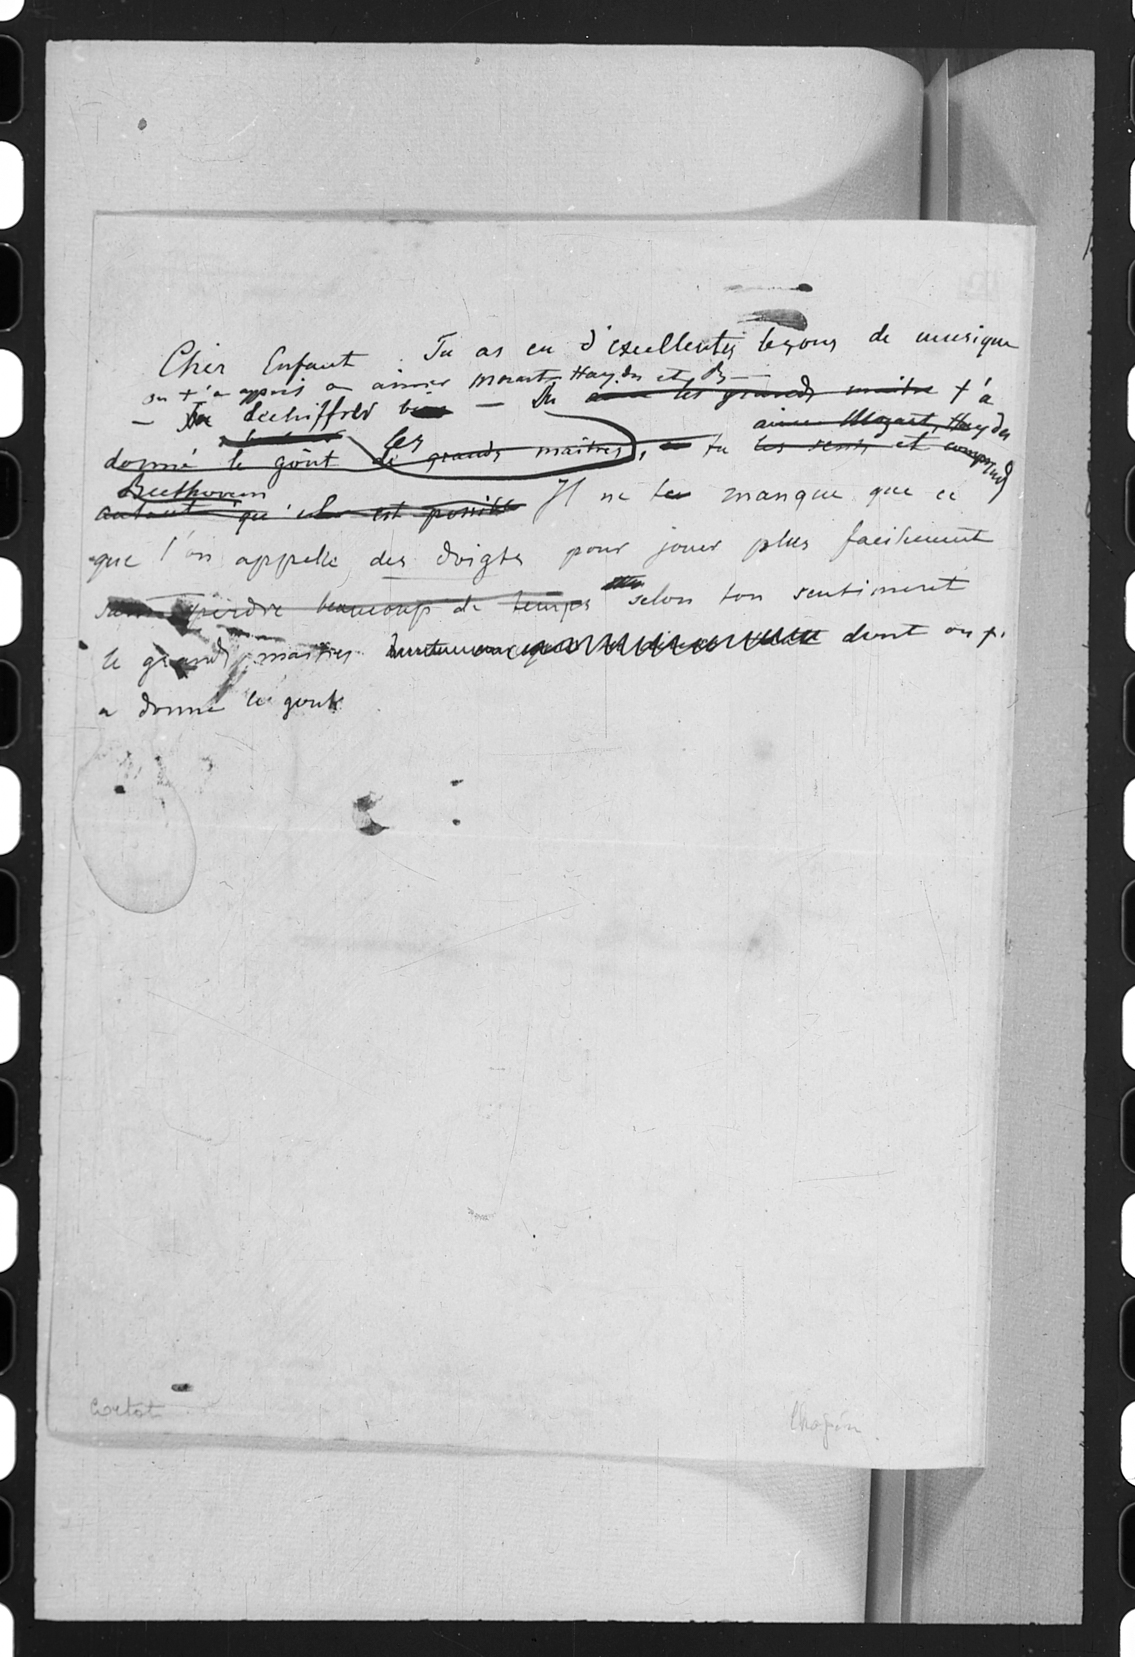 Cher Enfant. Tu as eu d'excellentes leçons de musique
on t'a appris a aimer Mozart Haydn et B
– Tu dechiffres bien – les grands maitre t'a
aimer Mozart, Haydn
donné le goût de les grands maitres, tu les sens et comprends
Beethoven
autant qu'il est possible Il ne te manque que ce
que l'on appelle des doigts pour jouer plus facilement
sans perdre beaucoup de temps selon ton sentiment
le grands maitres dont on t.
a donné le gout
Cortot
Chopin.